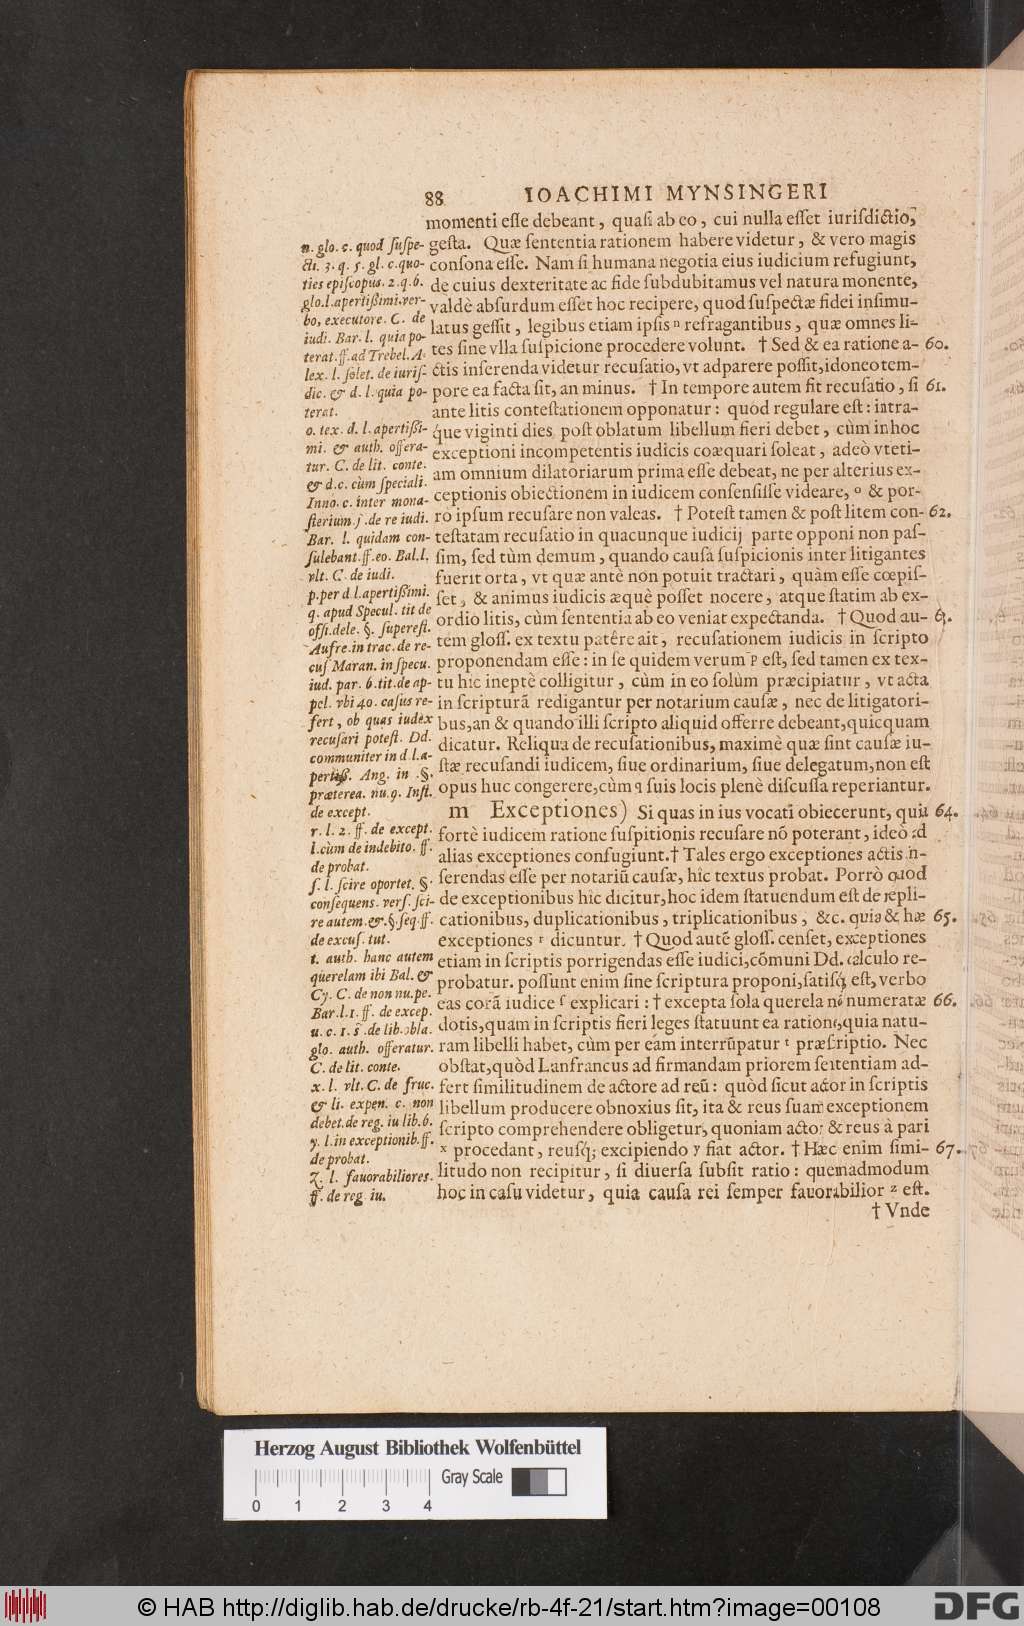 88 IOACHIMI MYNSINGERI
momenti eſſe debeant, quaſi ab eo, cui nulla eſſet iurisdictio,
geſta. Quæ ſententia rationem habere videtur, & vero magis
conſona eſſe. Nam ſi humana negotia eius iudicium refugiunt,
de cuius dexteritate ac fide ſubdubitamus vel natura monente,
valdè abſurdum eſſet hoc recipere, quod ſuſpectæ fidei inſimu-
latus geſſit, legibus etiam ipſis n refragantibus, quæ omnes li-
tes ſine vlla ſuſpicione procedere volunt. † Sed & ea ratione a- 60.
ctis inſerenda videtur recuſatio, vt adparere poſſit, idoneo tem-
pore ea facta ſit, an minus. † In tempore autem fit recuſatio, ſi 61.
ante litis conteſtationem opponatur: quod regulare eſt: intra-
q́ue viginti dies poſt oblatum libellum fieri debet, cùm in hoc
exceptioni incompetentis iudicis coæquari ſoleat, adeò vt eti-
am omnium dilatoriarum prima eſſe debeat, ne per alterius ex-
ceptionis obiectionem in iudicem conſenſiſſe videare, o & por-
rò ipſum recuſare non valeas. † Poteſt tamen & poſt litem con- 62.
teſtatam recuſatio in quacunque iudicij parte opponi non paſ-
ſim, ſed tùm demum, quando cauſa ſuſpicionis inter litigantes
fuerit orta, vt quæ antè non potuit tractari, quàm eſſe cœpiſ-
ſet, & animus iudicis æquè poſſet nocere, atque ſtatim ab ex-
ordio litis, cùm ſententia ab eo veniat expectanda. † Quod au- 63.
tem gloſſ. ex textu patêre ait, recuſationem iudicis in ſcripto
proponendam eſſe: in ſe quidem verum p eſt, ſed tamen ex tex-
tu hic ineptè colligitur, cùm in eo ſolùm præcipiatur, vt acta
in ſcripturã redigantur per notarium cauſæ, nec de litigatori-
bus, an & quando illi ſcripto aliquid offerre debeant, quicquam
dicatur. Reliqua de recuſationibus, maximè quæ ſint cauſæ iu-
ſtæ recuſandi iudicem, ſiue ordinarium, ſiue delegatum, non eſt
opus huc congerere, cùm q ſuis locis plenè diſcuſſa reperiantur.
m Exceptiones) Si quas in ius vocati obiecerunt, quia 64.
fortè iudicem ratione ſuſpitionis recuſare nõ poterant, ideò ad
alias exceptiones confugiunt. † Tales ergo exceptiones actis in-
ſerendas eſſe per notariũ cauſæ, hic textus probat. Porrò quod
de exceptionibus hic dicitur, hoc idem ſtatuendum eſt de repli-
cationibus, duplicationibus, triplicationibus, &c. quia & hæ 65.
exceptiones r dicuntur. † Quod autẽ gloſſ. cenſet, exceptiones
etiam in ſcriptis porrigendas eſſe iudici, cõmuni Dd. calculo re-
probatur. poſſunt enim ſine ſcriptura proponi, ſatisq́; eſt, verbo
eas corã iudice ſ explicari: † excepta ſola querela nõ numeratæ 66.
dotis, quam in ſcriptis fieri leges ſtatuunt ea ratione, quia natu-
ram libelli habet, cùm per eam interrũpatur t præſcriptio. Nec
obſtat, quòd Lanfrancus ad firmandam priorem ſententiam ad-
fert ſimilitudinem de actore ad reũ: quòd ſicut actor in ſcriptis
libellum producere obnoxius ſit, ita & reus ſuam exceptionem
ſcripto comprehendere obligetur, quoniam actor & reus à pari
x procedant, reusq́; excipiendo y fiat actor. † Hæc enim ſimi- 67.
litudo non recipitur, ſi diuerſa ſubſit ratio: quemadmodum
hoc in caſu videtur, quia cauſa rei ſemper fauorabilior z eſt.
† Vnde
n. glo. c. quod ſuſpe-
cti. 3. q. 5. gl. c. quo-
ties epiſcopus. 2. q. 6.
glo. l. apertißimi. ver-
bo, executore. C. de
iudi. Bar. l. quia po-
terat. ff. ad Trebel. A-
lex. l. ſolet. de iuriſ-
dic. & d. l. quia po-
terat.
o. tex. d. l. apertißi-
mi. & auth. offera-
tur. C. de lit. conte.
& d. c. cùm ſpeciali.
Inno. c. inter mona-
ſterium. j. de re iudi.
Bar. l. quidam con-
ſulebant. ff. eo. Bal. l.
vlt. C. de iudi.
p. per d l. apertißimi.
q. apud Specul. tit de
offi. dele. §. ſupereſt.
Aufre. in trac. de re-
cuſ Maran. in ſpecu.
iud. par. 6. tit. de ap-
pel. vbi 40. caſus re-
fert, ob quas iudex
recuſari poteſt. Dd.
communiter in d l. a-
pertiß. Ang. in §.
præterea. nu. 9. Inſt.
de except.
r. l. 2. ff. de except.
l. cùm de indebito. ff.
de probat.
ſ. l. ſcire oportet. §.
conſequens. verſ. ſci-
re autem. &. §. ſeq. ff.
de excuſ. tut.
t. auth. hanc autem
querelam ibi Bal. &
Cy. C. de non nu. pe.
Bar. l. 1. ff. de excep.
u. c. 1. §. de lib. obla.
glo. auth. offeratur.
C. de lit. conte.
x. l. vlt. C. de fruc.
& li. expen. c. non
debet. de reg. iu lib. 6.
y. l. in exceptionib. ff.
de probat.
z. l. fauorabiliores.
ff. de reg. iu.
Herzog August Bibliothek Wolfenbüttel
0 1 2 3 4 Gray Scale
© HAB http://diglib.hab.de/drucke/rb-4f-21/start.htm?image=00108
DFG